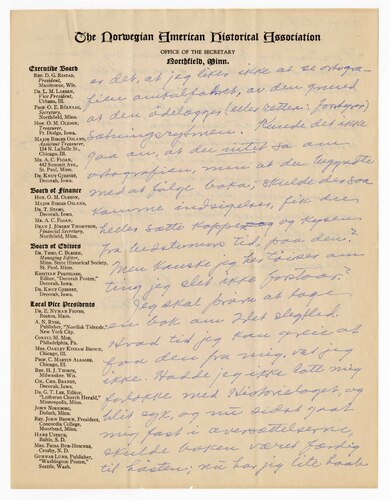 The Norwegian American Historical Association
OFFICE OF THE SECRETARY
Northfield, Minn.
Executive Board
REV. D. G. RISTAD,
President,
Manitowoc, Wis.
DR. L. M. LARSEN,
Vice President,
Urbana, Ill.
PROF. O. E. RÖLVAAG,
Secretary,
Northfield, Minn.
HON. O. M. OLESON,
Treasurer,
Ft. Dodge, Iowa.
MAJOR BIRGER OSLAND,
Assistant Treasurer,
134 N. LaSalle St.,
Chicago, Ill.
MR. A. C. FLOAN,
442 Summit Ave.,
St. Paul, Minn.
DR. KNUT GJERSET,
Decorah, Iowa.
Board of Finance
HON. O. M. OLESON,
MAJOR BIRGER OSLAND,
DR. T. STABO,
Decorah, Iowa.
MR. A. C. FLOAN,
DEAN J. JÖRGEN THOMPSON,
Financial Secretary,
Northfield, Minn.
Board of Editors
DR. THEO. C. BLEGEN,
Managing Editor,
Minn. State Historical Society,
St. Paul, Minn.
KRISTIAN PRESTGARD,
Editor, "Decorah Posten,"
Decorah, Iowa.
DR. KNUT GJERSET,
Decorah, Iowa.
Local Vice Presidents
DR. E. NYMAN FIGVED,
Boston, Mass.
A. N. RYGG,
Publisher, "Nordisk Tidende,"
New York City.
CONSUL M. MOE,
Philadelphia, Pa.
MRS. OAKLEY KISSAM BROWN,
Chicago, Ill.
PROF. C. MARTIN ALSAGER,
Chicago, Ill.
REV. H. J. THORPE,
Milwaukee, Wis.
COL. CHR. BRANDT,
Decorah, Iowa.
DR. G. T. LEE, Editor
"Lutheran Church Herald,"
Minneapolis, Minn.
JOHN NORDBERG,
Duluth, Minn.
REV. JOHN BROWN, President,
Concordia College,
Moorhead, Minn.
HANS USTRUD,
Baltic, S. D.
MRS. FRIDA BUE-HOMNES,
Crosby, N. D.
GUNNAR LUND, Publisher
"Washington Posten,"
Seattle, Wash.
er det, at jeg liker ikke at se ortogra-
fien av den grund
at den ödelegger (eller retter: fordyrer)
Sætningsrytmen. Kunde det ikke
gaa an at du intet sa om
ortografien, men at du begyndte
med at fölge boka; skulde der saa
komme indsigelser, fik du
heller sætte Koppen og Kysen
fra bestemoers tid, paa den?
Men kanske jeg her om
ting jeg slet ikke forstaar?
Jeg skal pröve at
en bok om Slet Slegfred.
Hvad tid jeg kan greie at
faa den fra mig, vet jeg
ikke. Hadde jeg ikke latt mig
forlokke med Historielaget og
blit syk, og nu sidst gaat
mig fast i oversættelserne,
skulde boken været færdig
til hösten; nu har jeg lite haab